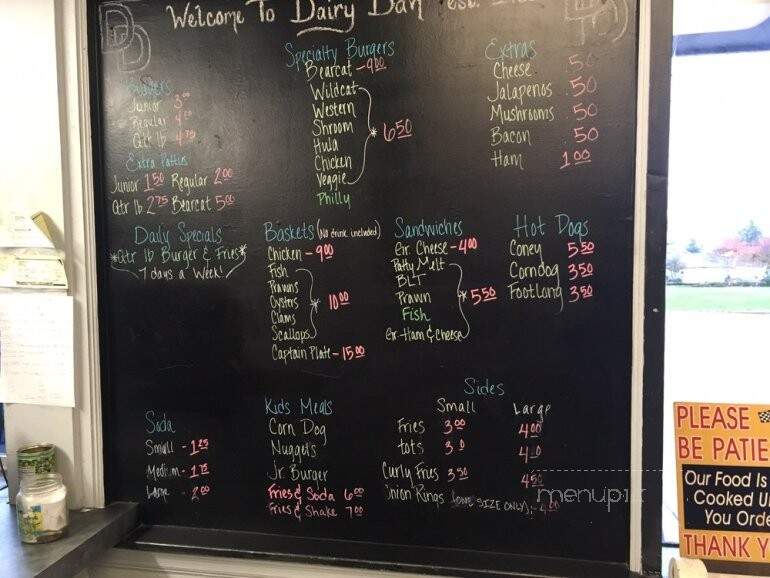 Welcome To Dairy Dan est.
DD
Burgers
Junior 3.00
Regular 4.00
Qtr lb 4.75
Extra Patties
Junior 1.50 Regular 2.00
Qtr lb 2.75 Bearcat 5.00
Daily Specials
*Qtr lb Burger & Fries*
7 days a Week!
Specialty Burgers
Bearcat - 9.00
Wildcat
Western
Shroom
Hula
Chicken
Veggie
* 6.50
Philly
Extras
Cheese 50
Jalapenos 50
Mushrooms 50
Bacon 50
Ham 1.00
Baskets (No drink included)
Chicken - 9.00
Fish
Prawns
Oysters
Clams
Scallops
* 10.00
Captain Plate - 15.00
Sandwiches
Gr. Cheese - 4.00
Patty Melt
BLT
Prawn
Fish
Gr. Ham & Cheese
* 5.50
Hot Dogs
Coney 5.50
Corndog 3.50
Footlong 3.50
Soda
Small - 1.25
Medium - 1.75
Large - 2.00
Kids Meals
Corn Dog
Nuggets
Jr. Burger
Fries & Soda 6.00
Fries & Shake 7.00
Sides
Small Large
Fries 3.00 4.00
tots
Curly Fries 3.50 4.50
Onion Rings (ONE SIZE ONLY) - 4.00
menupix
PLEASE
BE PATIE
Our Food Is
Cooked
You Orde
THANK Y